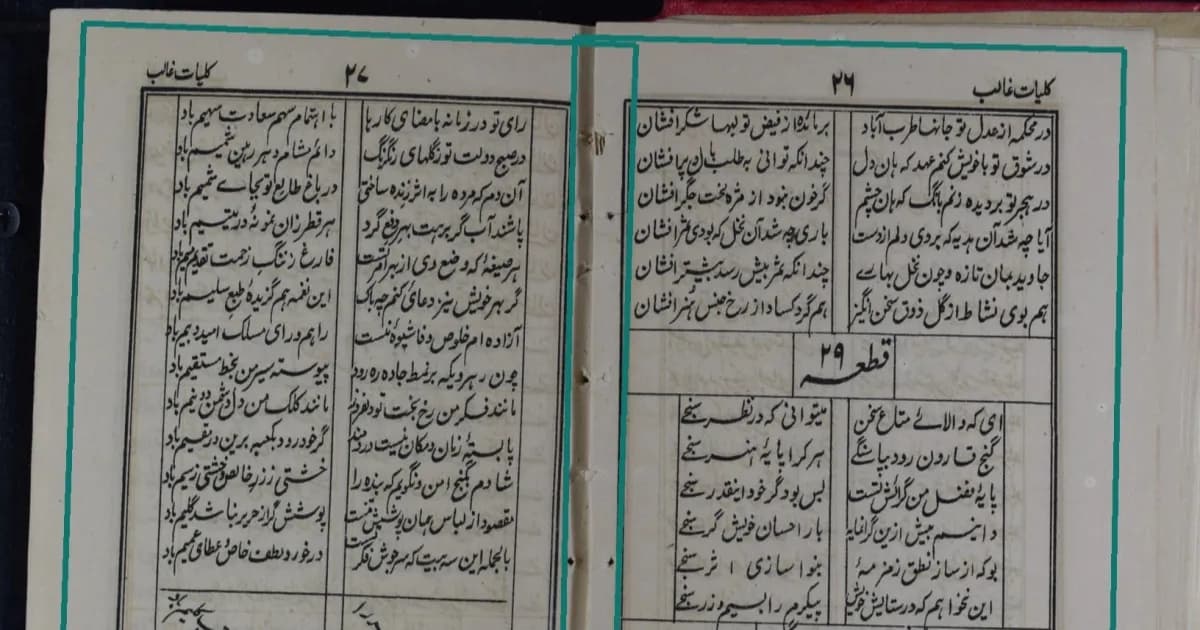 کلیات غالب ۲۶
در محکمه از عدل تو جانها طرب آباد برمائده از فیض تو لبها شکر افشان
در شوق تو باخویش کنم عهد که هان دل چندانکه توانی به طلب بال و پر افشان
در هجر تو بر دیده زنم بانگ که هان چشم گر خون نبود از مژه لخت جگر افشان
آیا چه شد آن هدیه که بردی دلم از دست باری چه شد آن نخل که بودی ثمر افشان
جاوید بمان تازه و چون نخل بهاے چندانکه ثمر بیش رسد بیشتر افشان
هم بوی نشاط از گل ذوق سخن انگیز هم گرد کساد از رخ جنس هنر افشان
قطعه ۲۹
ای که والائے متاع سخن میتوانی که در نظر سنجے
گنج قارون رود بپاسنگے هر کرا پایهٔ هنر سنجے
پایهٔ فضل من گرایش تست بس بود گر خود اینقدر سنجے
دانیم بیش ازین گرانمایه بار احسان خویش گر سنجے
بو که از ساز نطق زمزمهٔ بنوا سازی اثر سنجے
این نخواهم که در ستایش خویش پیکرم را بسیم و زر سنجے
کلیات غالب ۲۷
رای تو در زمانه بامضای کارها با اهتمام سهم سعادت سهیم باد
در صبح دولت تو ز گلهای رنگرنگ دائم مشام دهر رهین شمیم باد
آن دم که مرده را به اثر زنده ساختی در باغ طالع تو بجاے شمیم باد
پاشند آب گر برهت بهر دفع گرد هر قطره زان نمونهٔ در یتیم باد
هر صیغهٔ که وضع دی از بهر امر تست فارغ ز ننگ زحمت تقدیم باد
گر بهر خویش نیز دعائی کنم چه باک این نغمه هم گزیدهٔ طبع سلیم باد
آزاده ام خلوص و وفا شیوهٔ منست راهم ورای مسلک امید و بیم باد
چون رهرویکه بر نمط جاده ره رود پیوسته سیر من بخط مستقیم باد
مانند فکر من رخ بخت تو دلفروز مانند کلک من دل دشمن دو نیم باد
پابستهٔ زمان و مکان نیست دردمند گر خود رود بکعبه برین در مقیم باد
شادم بکنج امن و نگویم که بنده را خشتی ز زر خالص و خشتی ز سیم باد
مقصود از لباس همان پوشش تنست پوشش گر از حریر نباشد گلیم باد
بالجمله این سه بیت که سرجوش فکر تست درخورد لطف خاص و عطای عمیم باد